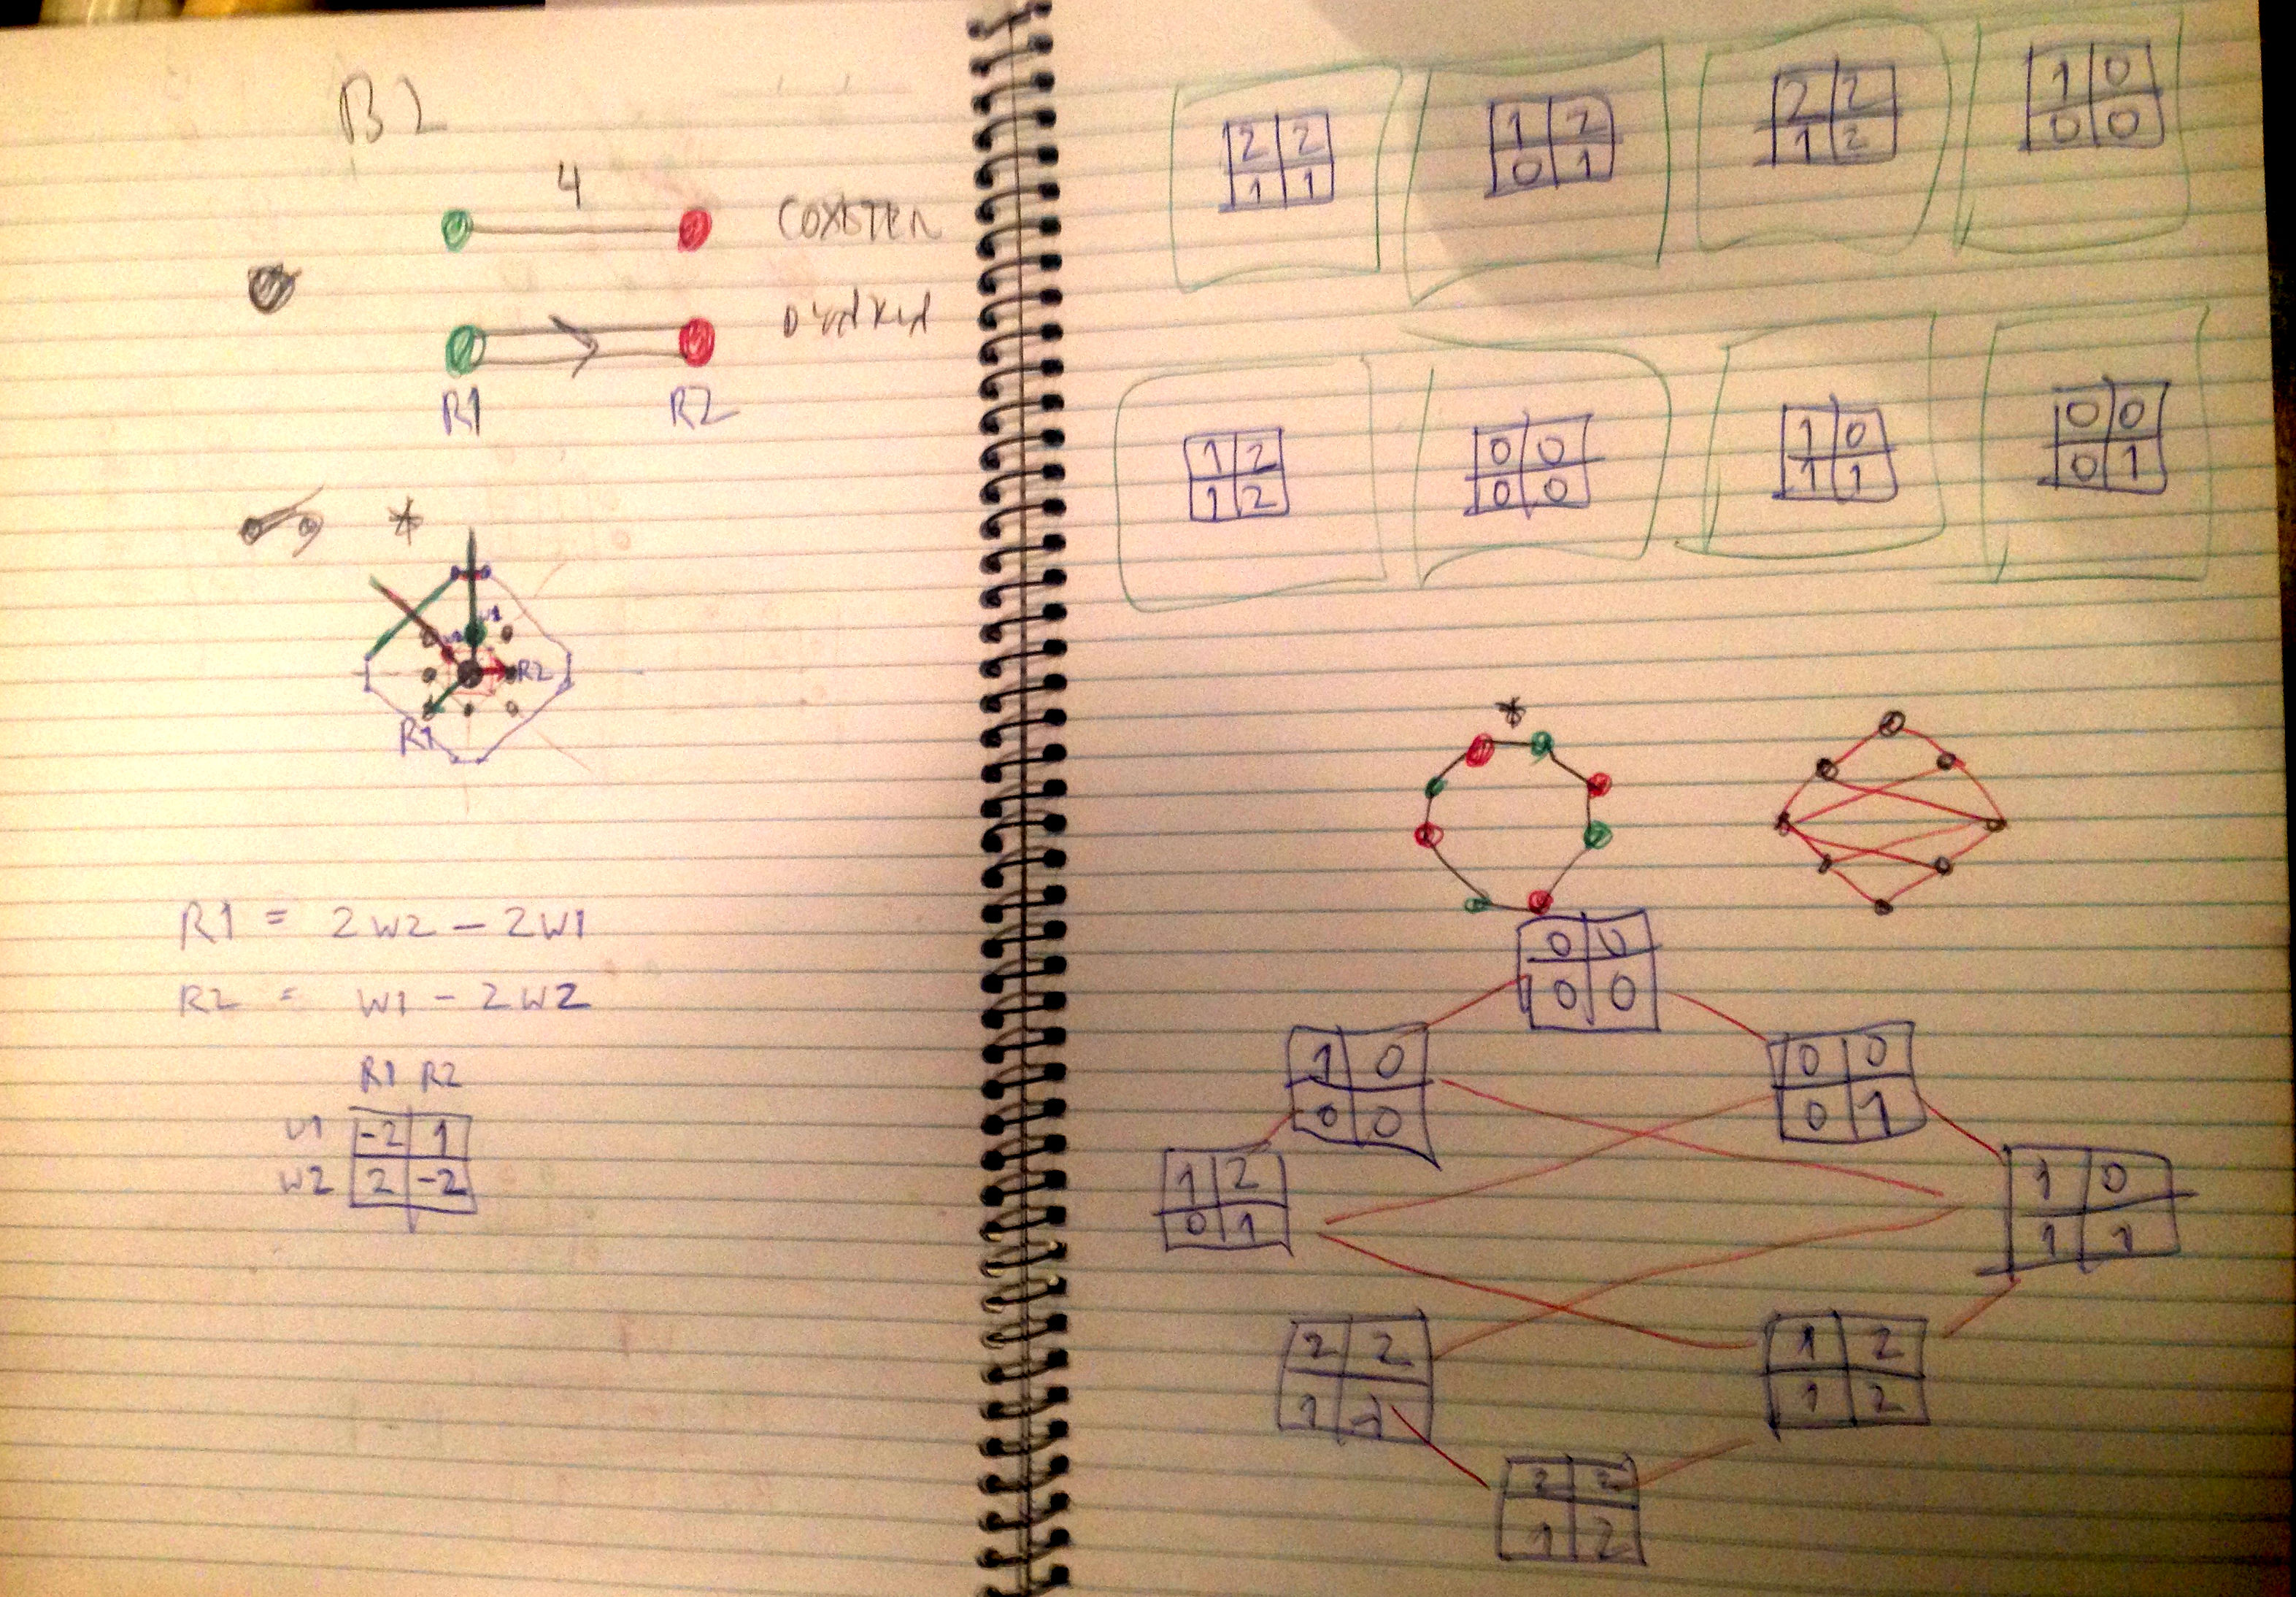 B2
4
COXETER
DYNKIN
R1 R2
*
W1
R2
R1
R1 = 2W2 - 2W1
R2 = W1 - 2W2
R1 R2
W1 -2 1
W2 2 -2
2 2 1 2 2 2 1 0
1 1 0 1 1 2 0 0
1 2 0 0 1 0 0 0
1 2 0 0 1 1 0 1
*
0 0
0 0
1 0 0 0
0 0 0 1
1 2 1 0
0 1 1 1
2 2 1 2
1 1 1 2
2 2
1 2